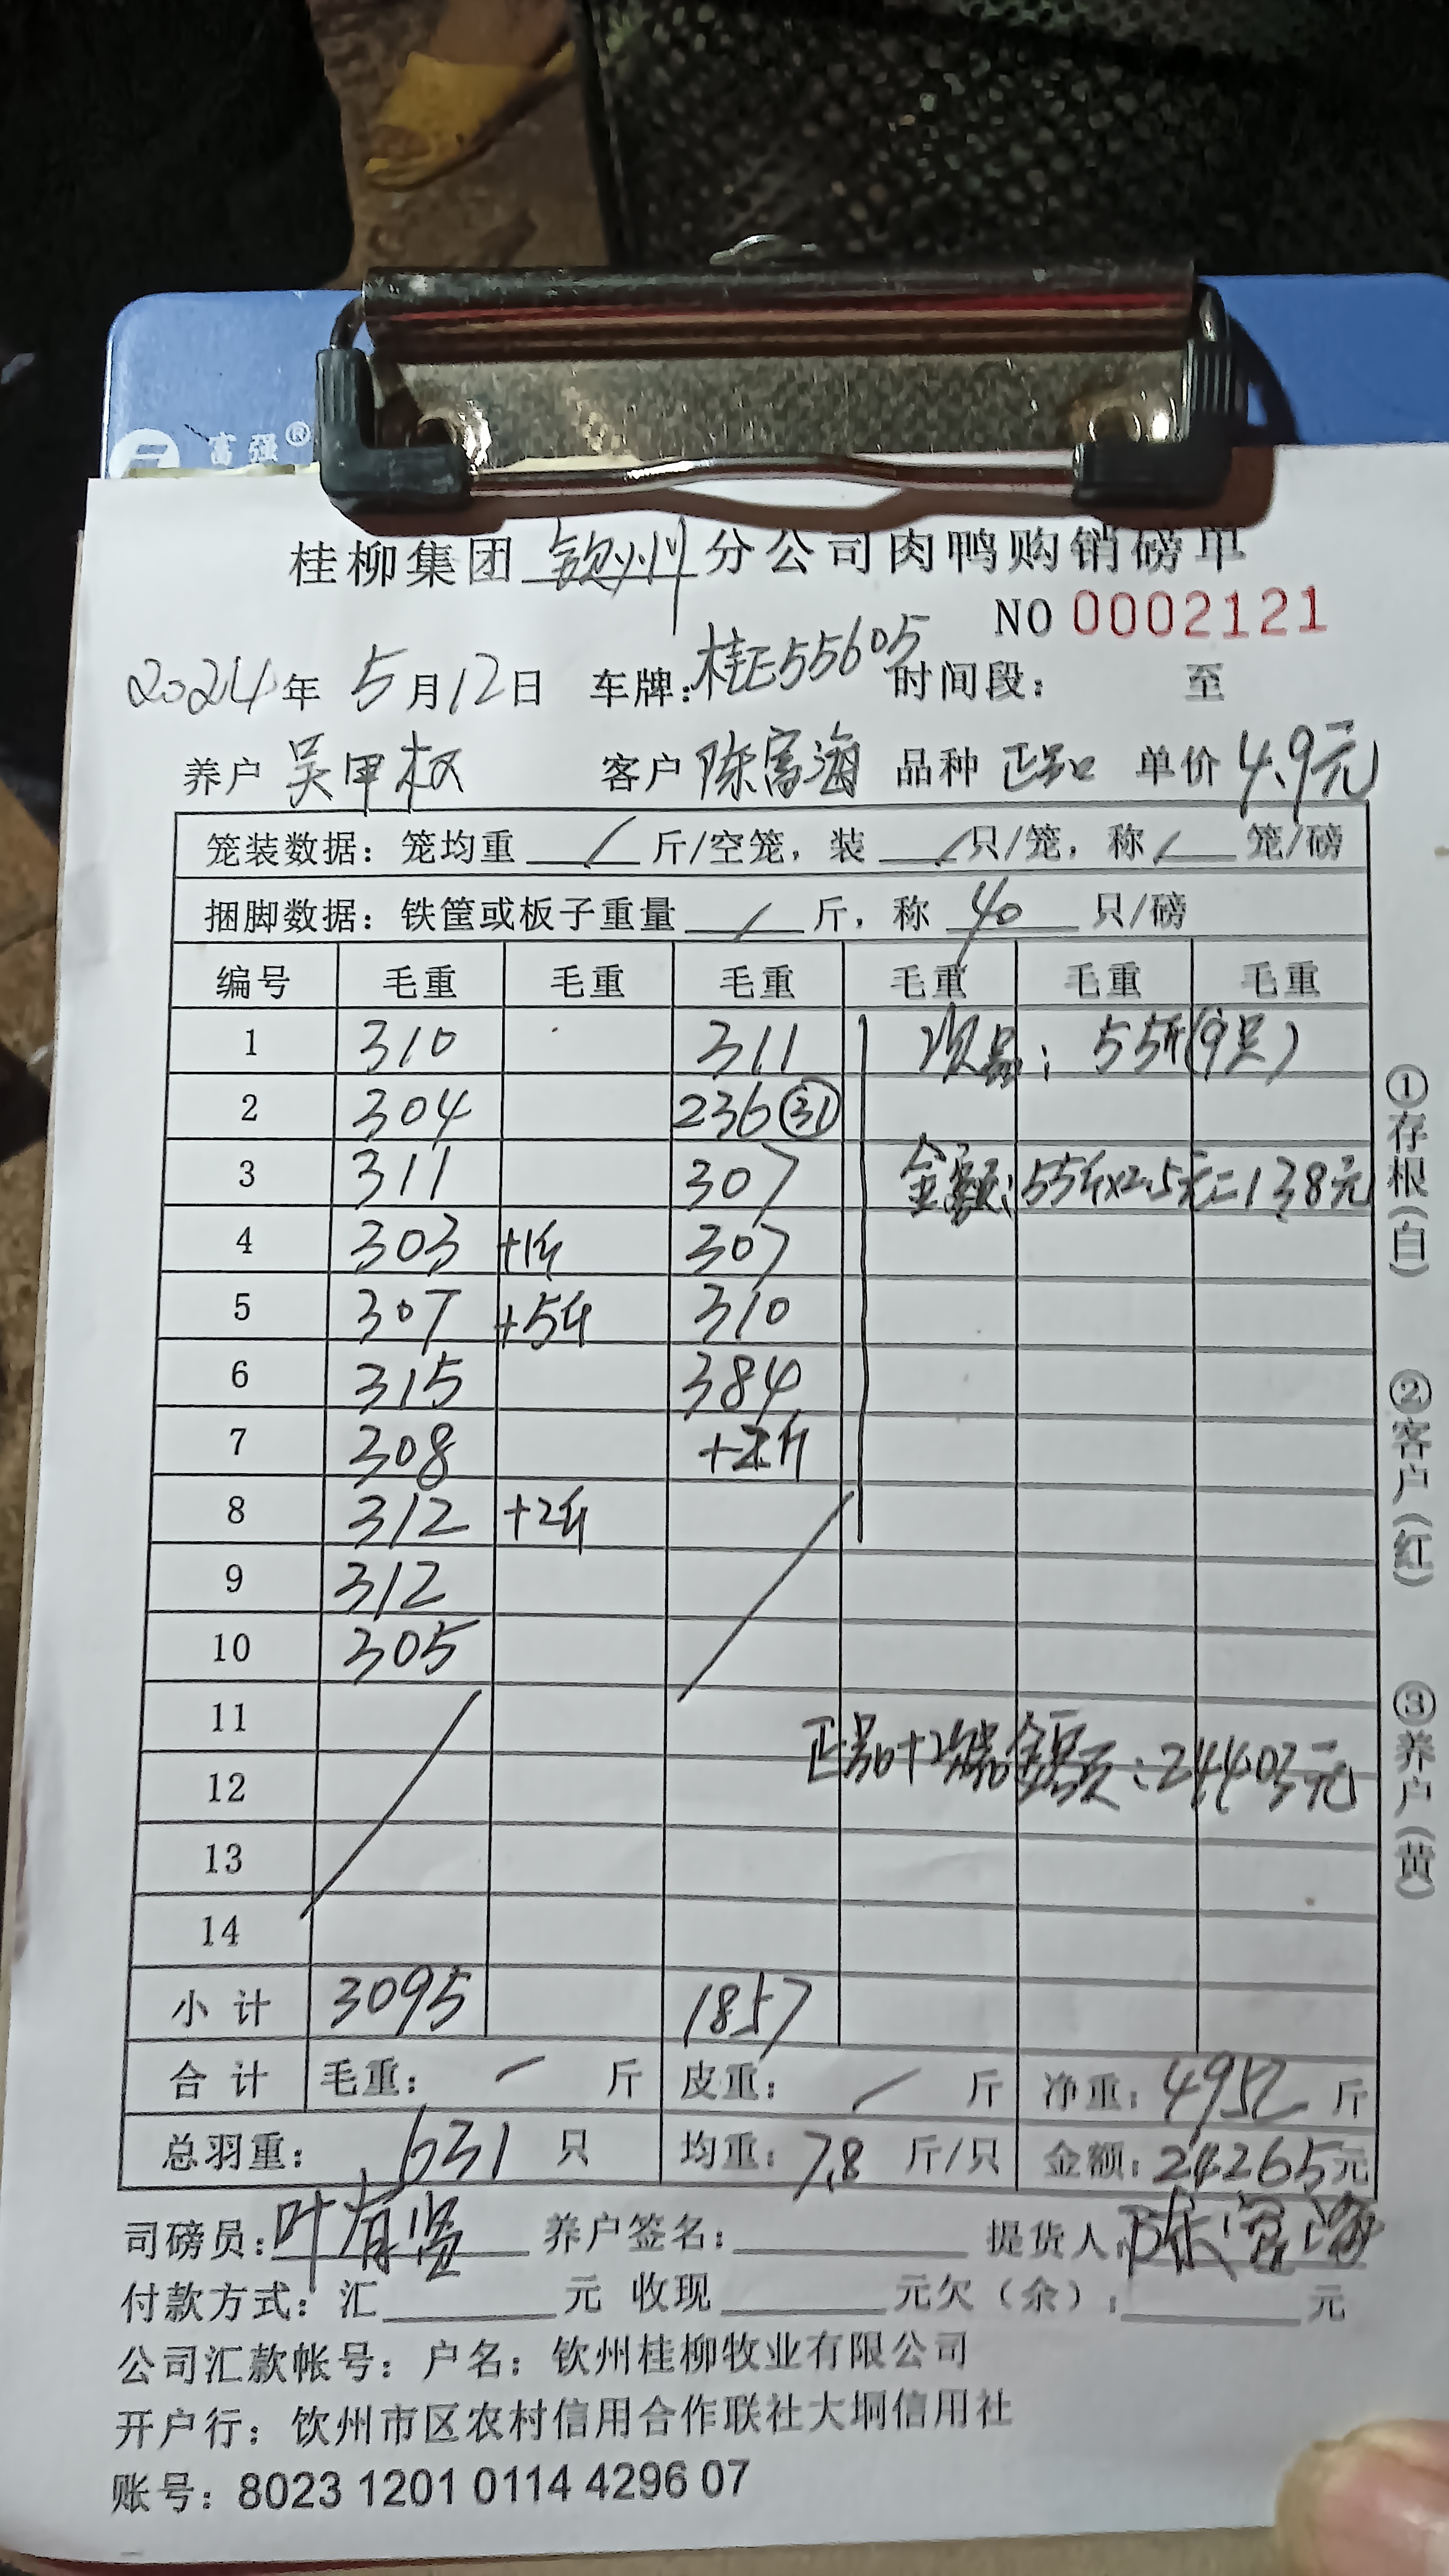 富强®
桂柳集团 钦州 分公司肉鸭购销磅单
NO 0002121
2024年 5月12日 车牌:桂E55605 时间段: 至
养户 吴甲权 客户 陈富海 品种 正品 单价 4.9元
笼装数据: 笼均重 / 斤/空笼, 装 / 只/笼, 称 / 笼/磅
捆脚数据: 铁筐或板子重量 / 斤, 称 40 只/磅
编号 毛重 毛重 毛重 毛重 毛重 毛重
1 310 311 次品: 55斤(9只)
2 304 236 ㉛
3 311 307 金额: 55斤×2.5元=138元
4 303 +1斤 307
5 307 +5斤 310
6 315 384
7 308 +2斤
8 312 +2斤
9 312
10 305
11
12 正品+次品金额: 24403元
13
14
小 计 3095 1857
合 计 毛重: / 斤 皮重: / 斤 净重: 4952 斤
总羽重: 631 只 均重: 7.8 斤/只 金额: 24265元
司磅员: 叶有贤 养户签名: 提货人: 陈富海
付款方式: 汇 元 收现 元欠(余): 元
公司汇款帐号: 户名: 钦州桂柳牧业有限公司
开户行: 钦州市区农村信用合作联社大垌信用社
账号: 8023 1201 0114 4296 07
①存根(白)
②客户(红)
③养户(黄)